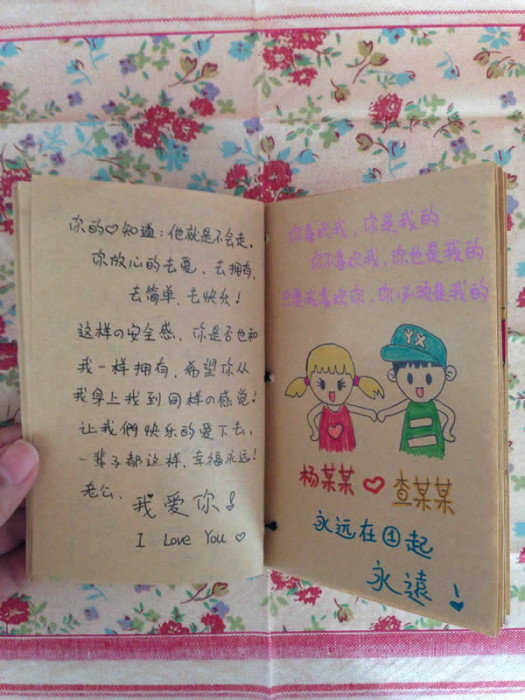 你的♡知道：他就是不会走，
你放心的去宽，去拥有，
去简单，去快乐！
这样の安全感，你是否也和
我一样拥有，希望你从
我身上找到同样の感觉！
让我們快乐的爱下去，
一辈子都这样，幸福永远！
老公，我爱你！
I Love You ♡
你喜欢我，你是我的
你不喜欢我，你也是我的
只要我喜欢你，你必须是我的
YX
杨某某 ♡ 查某某
永远在①起
永遠！